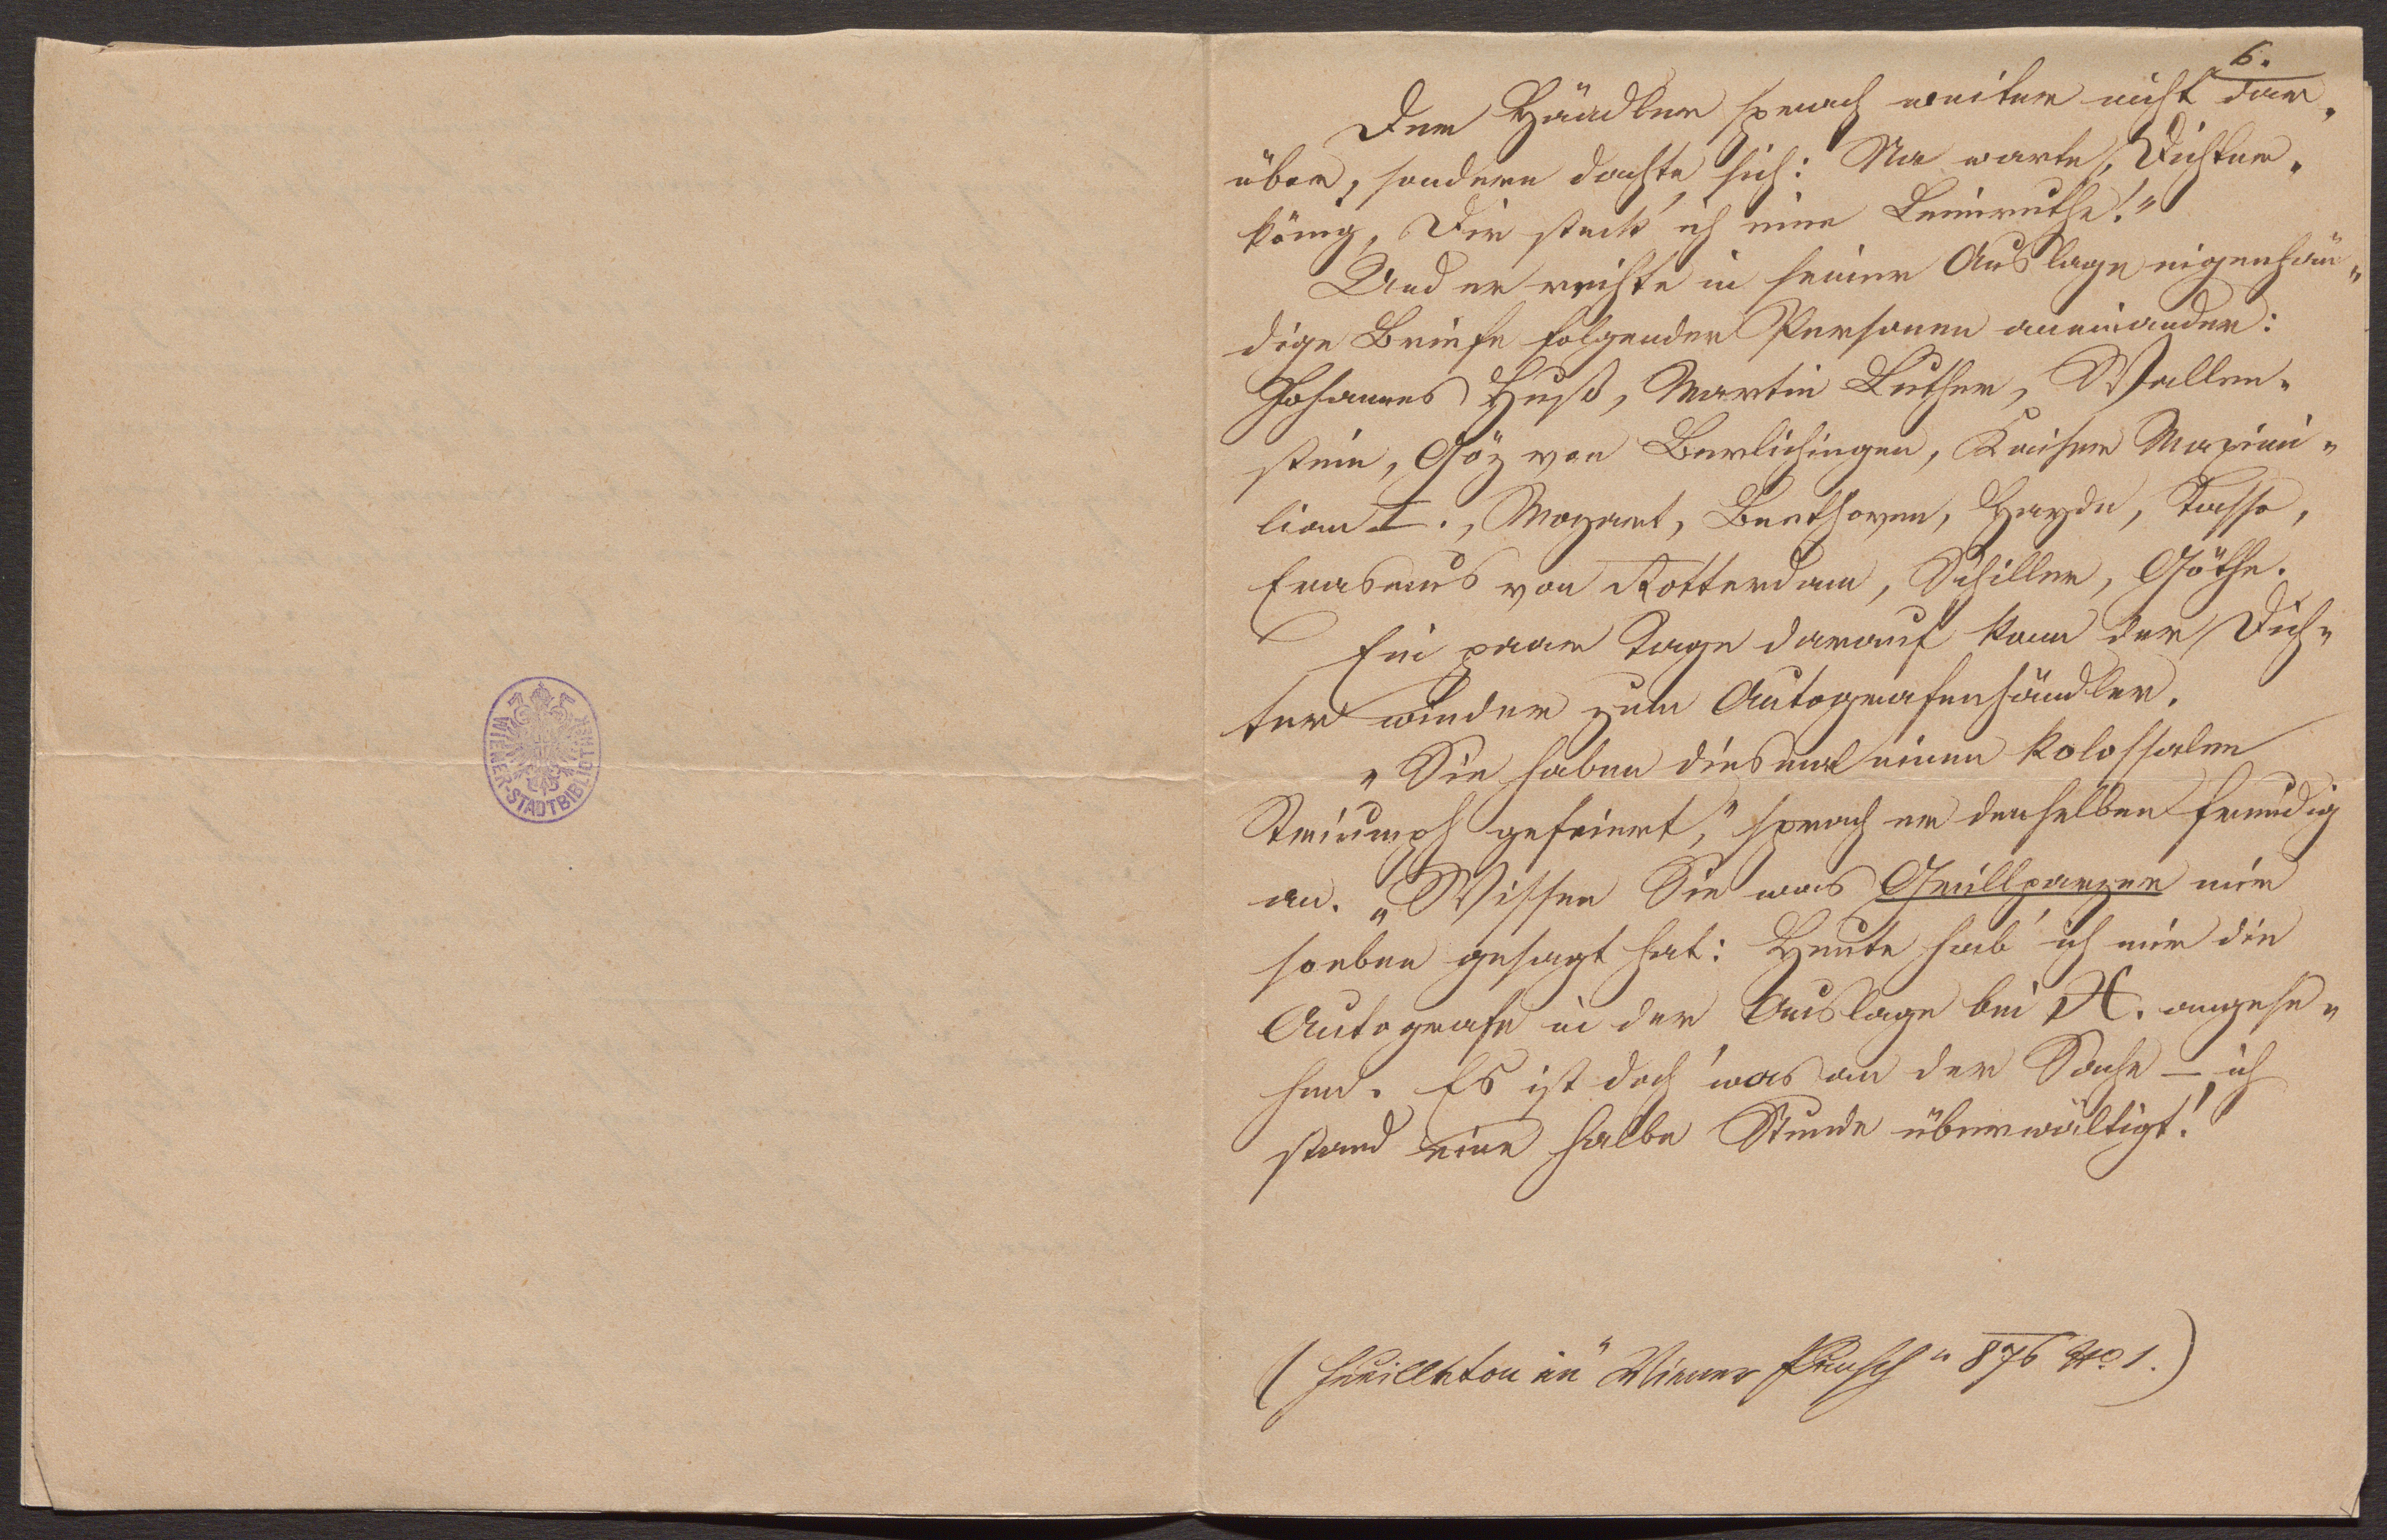 WIENER-STADTBIBLIOTHEK
6.
Der Händler sprach weiter nicht dar-
über, sondern dachte sich: Na warte, Dichter-
könig, Dir steck' ich eine Leimruthe!"
Und er reihte in seiner Auslage eigenhän-
dige Briefe folgender Personen aneinander:
Johannes Huß, Martin Luther, Wallen-
stein, Göz von Berlichingen, Kaiser Maximi-
lian I., Mozart, Beethoven, Haydn, Tasso,
Erasmus von Rotterdam, Schiller, Göthe.
Ein paar Tage darauf kam der Dich-
ter wieder zum Autografenhändler.
"Sie haben diesmal einen kolossalen
Triumph gefeiert," sprach er denselben freudig
an. "Wissen Sie was Grillparzer mir
soeben gesagt hat: Heute hab' ich mir die
Autografe in der Auslage bei X. angese-
hen. Es ist doch 'was an der Sache – ich
stand eine halbe Stunde überwältigt!
(Feuilleton in "Wiener Punsch" 876 No. 1.)